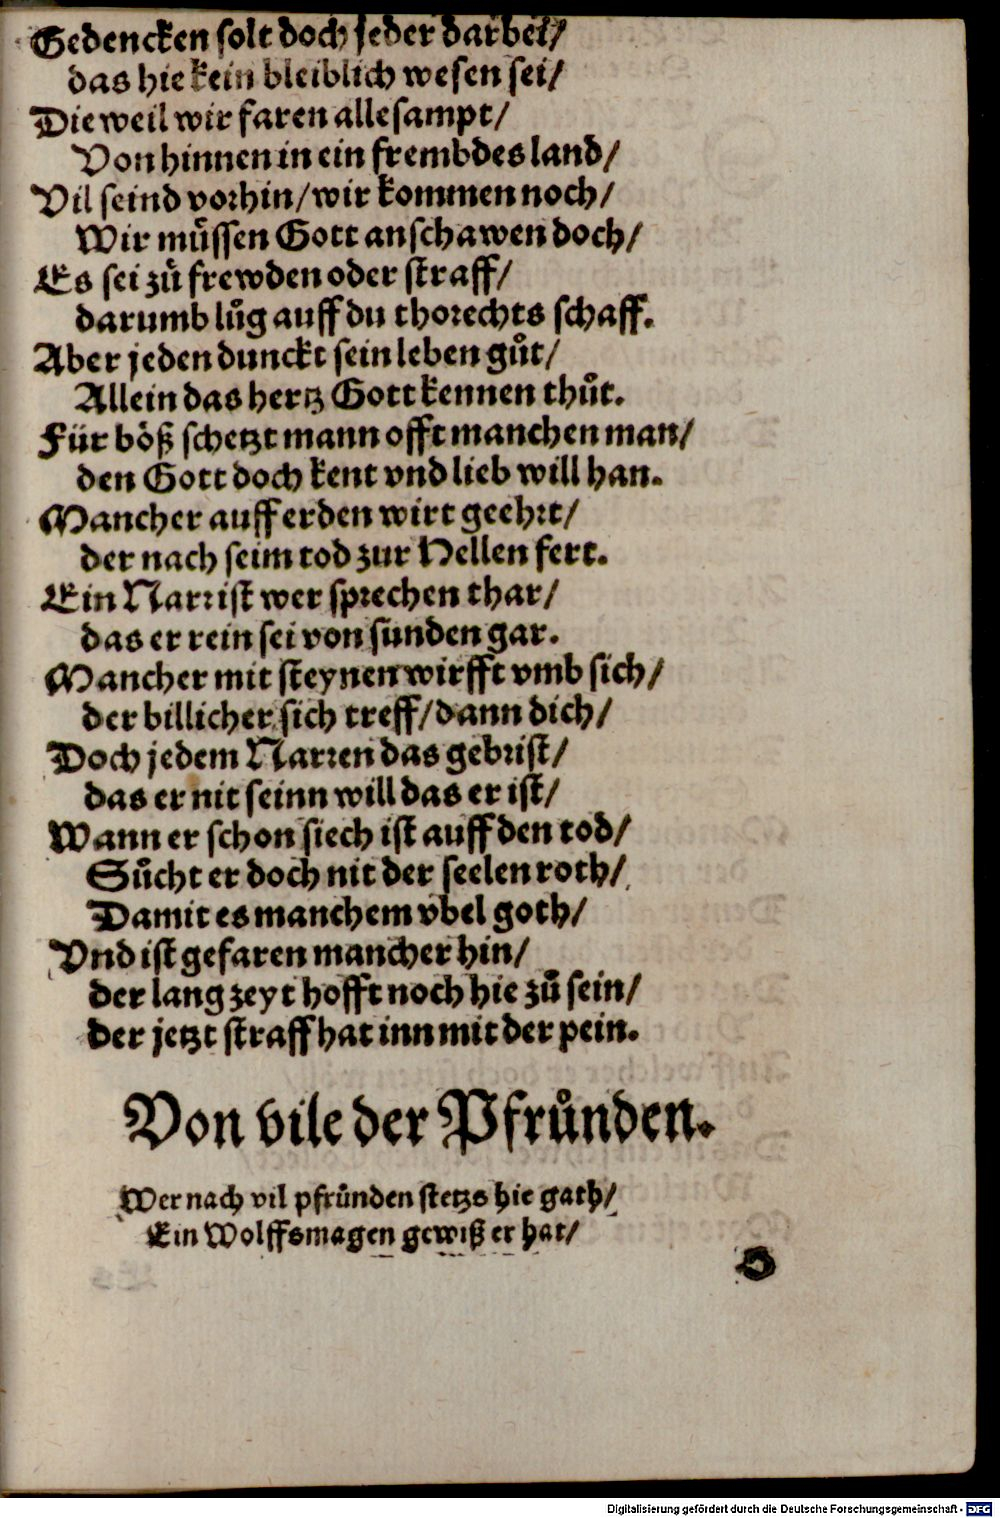 Gedencken solt doch jeder darbei/
das hie kein bleiblich wesen sei/
Die weil wir faren allesampt/
Von hinnen in ein frembdes land/
Vil seind vorhin/ wir kommen noch/
Wir müssen Gott anschawen doch/
Es sei zů frewden oder straff/
darumb lůg auff du thorechts schaff.
Aber jeden dunckt sein leben gůt/
Allein das hertz Gott kennen thůt.
Für böß schetzt mann offt manchen man/
den Gott doch kent vnd lieb will han.
Mancher auff erden wirt geehrt/
der nach seim tod zur Hellen fert.
Ein Narr ist wer sprechen thar/
das er rein sei von sünden gar.
Mancher mit steynen wirfft vmb sich/
der billicher sich treff/ dann dich/
Doch jedem Narren das gebrist/
das er nit seinn will das er ist/
Wann er schon siech ist auff den tod/
Sůcht er doch nit der seelen roth/
Damit es manchem vbel goth/
Vnd ist gefaren mancher hin/
der lang zeyt hofft noch hie zů sein/
der jetzt straff hat inn mit der pein.
Von vile der Pfrůnden.
Wer nach vil pfrůnden stetzs hie gath/
Ein Wolffsmagen gewiß er hat/
Digitalisierung gefördert durch die Deutsche Forschungsgemeinschaft - DFG